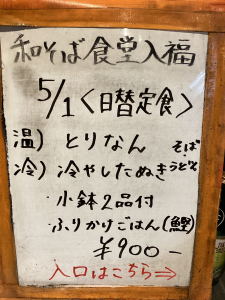 和そば食堂入福
5/1〈日替定食〉
温）とりなん そば
冷）冷やしたぬき うどん
小鉢2品付
ふりかけごはん(鰹)
¥900-
入口はこちら⇒